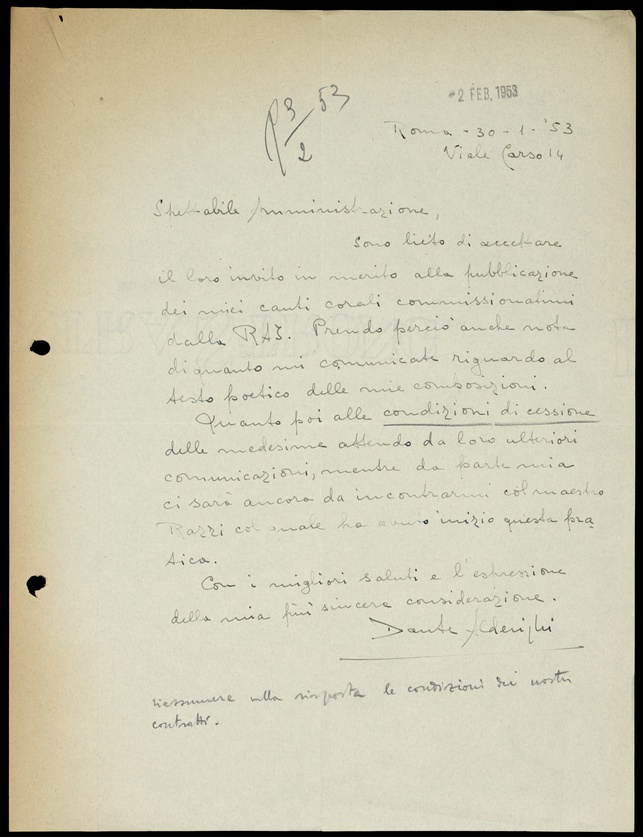 3/2 53
2 FEB. 1953
Roma - 30 - 1 - '53
Viale Carso 14
Spettabile Amministrazione,
Sono lieto di accettare
il loro invito in merito alla pubblicazione
dei miei canti corali commissionatimi
dalla RAI. Prendo perciò anche nota
di quanto mi comunicate riguardo al
testo poetico delle mie composizioni.
Quanto poi alle condizioni di cessione
delle medesime attendo da loro ulteriori
comunicazioni, mentre da parte mia
ci sarà ancora da incontrarmi col maestro
Razzi col quale ha avuto inizio questa pra
tica.
Con i migliori saluti e l'espressione
della mia più sincera considerazione.
Dante Alderighi
riassumere nella risposta le condizioni dei nostri
contratti.